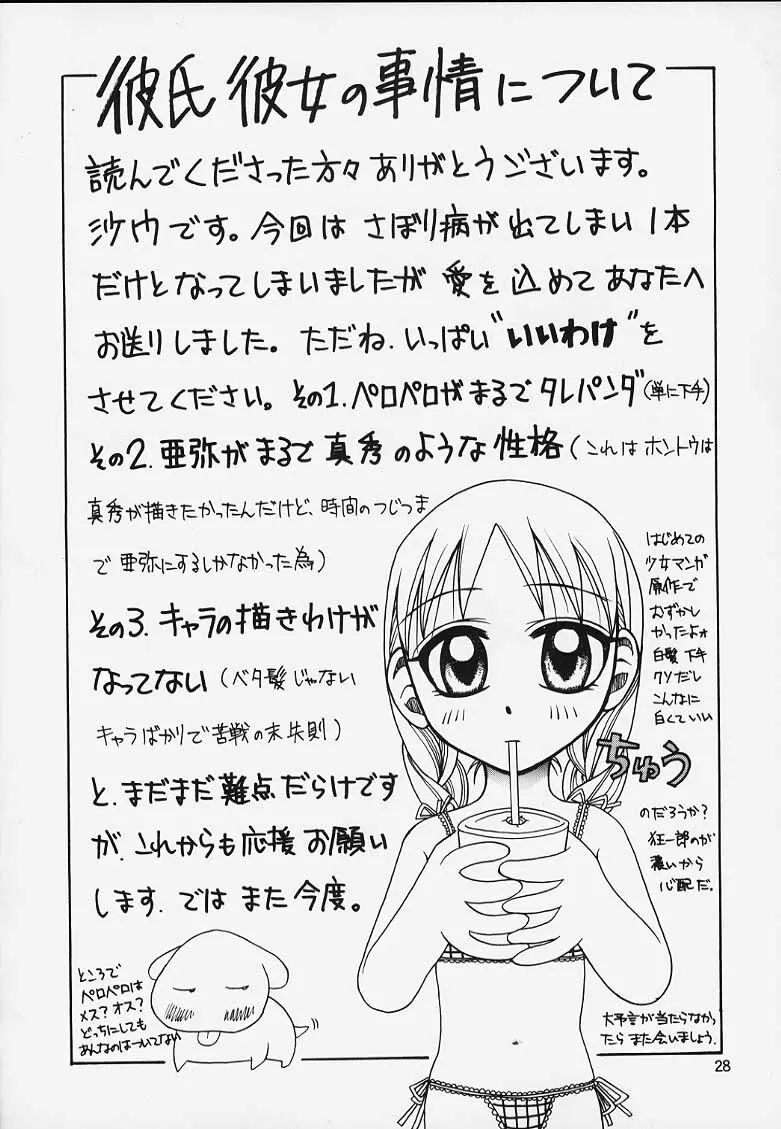 彼氏彼女の事情について
読んでくださった方々ありがとうございます。
沙ウです。今回は さぼり病が出てしまい 1本
だけとなってしまいましたが 愛を込めてあなたへ
お送りしました。ただね、いっぱい"いいわけ"を
させてください。その1.ペロペロがまるでタレパンダ(単に下手)
その2.亜弥がまるで真秀のような性格(これはホントウは
真秀が描きたかったんだけど、時間のつじつま
で亜弥にするしかなかった為)
その3.キャラの描きわけが
なってない(ベタ髪じゃない
キャラばかりで苦戦の末失則)
と、まだまだ難点だらけです
が、これからも応援お願い
します、ではまた今度。
はじめての
少女マンガ
原作で
むずかし
かったよォ
白髪下手
クソだし
こんなに
白くていい
のだろうか?
狂一郎のが
濃いから
心配だ。
ちゅう
ところで
ペロペロは
メス?オス?
どっちにしても
あんなのはついてない
大予言が当たらなかっ
たら また会いましょう.
28